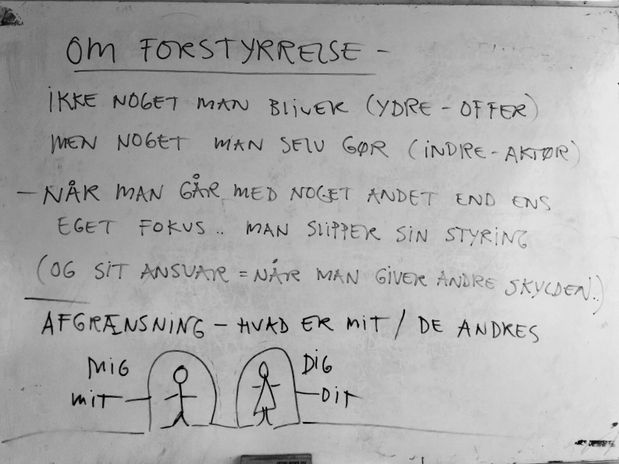 OM FORSTYRRELSE -
IKKE NOGET MAN BLIVER (YDRE - OFFER)
MEN NOGET MAN SELV GØR (INDRE - AKTØR)
- NÅR MAN GÅR MED NOGET ANDET END ENS
EGET FOKUS .. MAN SLIPPER SIN STYRING
(OG SIT ANSVAR = NÅR MAN GIVER ANDRE SKYLDEN.)
AFGRÆNSNING - HVAD ER MIT / DE ANDRES
MIG DIG
MIT DIT